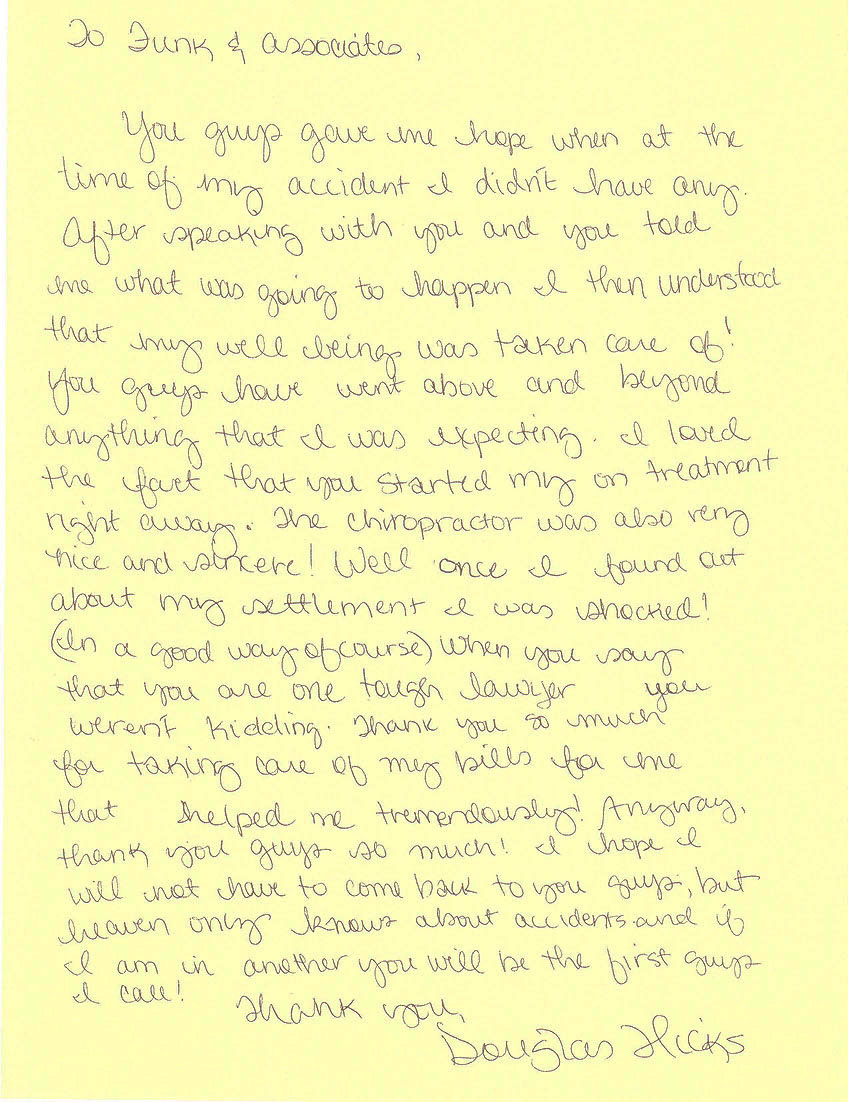 To Funk & Associates,
You guys gave me hope when at the
time of my accident I didn't have any.
After speaking with you and you told
me what was going to happen I then understood
that my well being was taken care of!
You guys have went above and beyond
anything that I was expecting. I loved
the fact that you started my on treatment
right away. The chiropractor was also very
nice and sincere! Well once I found out
about my settlement I was shocked!
(In a good way of course) When you say
that you are one tough lawyer you
weren't kidding. Thank you so much
for taking care of my bills for me
that helped me tremendously! Anyway,
thank you guys so much! I hope I
will not have to come back to you guys, but
heaven only knows about accidents and if
I am in another you will be the first guys
I call!
Thank you,
Douglas Hicks